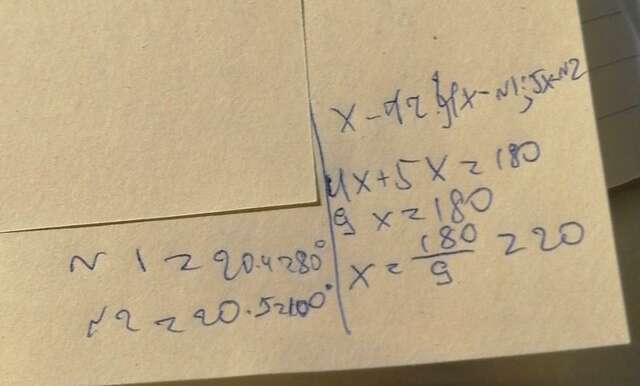 4x - ∿1; 5x ∿2
4x + 5x = 180
9x = 180
x = 180/9 = 20
∿1 = 20·4=80°
∿2 = 20·5=100°